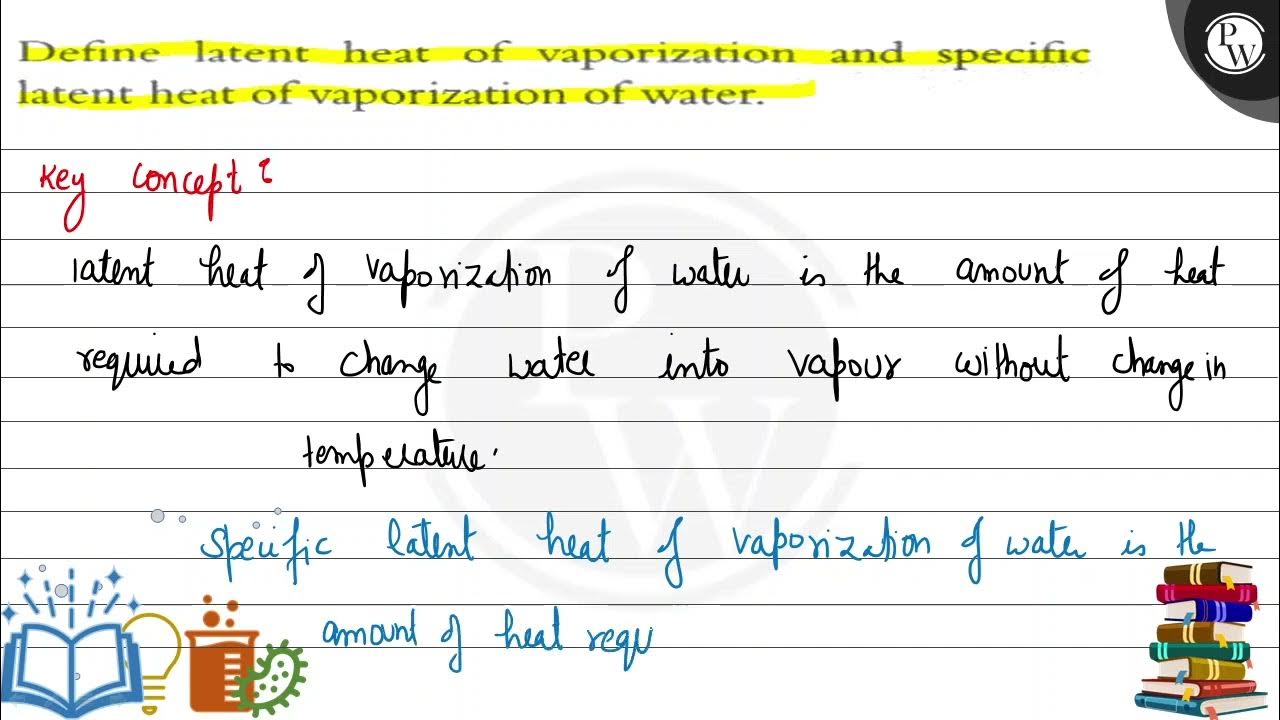 Define latent heat of vaporization and specific
latent heat of vaporization of water.
PW
Key Concept :
latent heat of vaporization of water is the amount of heat
required to change water into vapour without change in
temperature.
Specific latent heat of vaporization of water is the
amount of heat requ